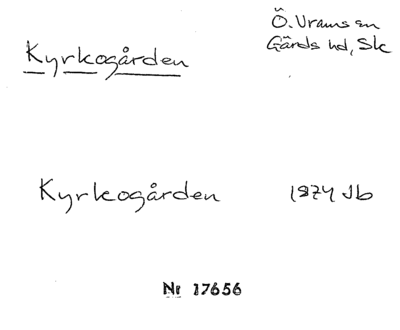 Kyrkogården
Ö. Vrams sn
Gärds hd, Sk
Kyrkogården 1874 Jb
Nr 17656